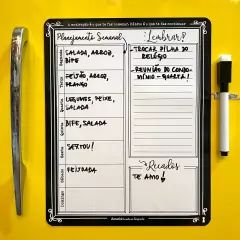 A motivação é o que te faz começar. Hábito é o que te faz continuar.
Planejamento Semanal
Segunda
SALADA, ARROZ,
BIFE
Terça
FEIJÃO, ARROZ,
FRANGO
Quarta
LEGUMES, PEIXE,
SALADA
Quinta
BIFE, SALADA
Sexta
SERTOU!
Sábado
FEIJOADA
Domingo
Lembrar!
TROCAR PILHA DO
RELÓGIO
REUNIÃO DO CONDO-
MÍNIO - QUARTA!
Recados
TE AMO!